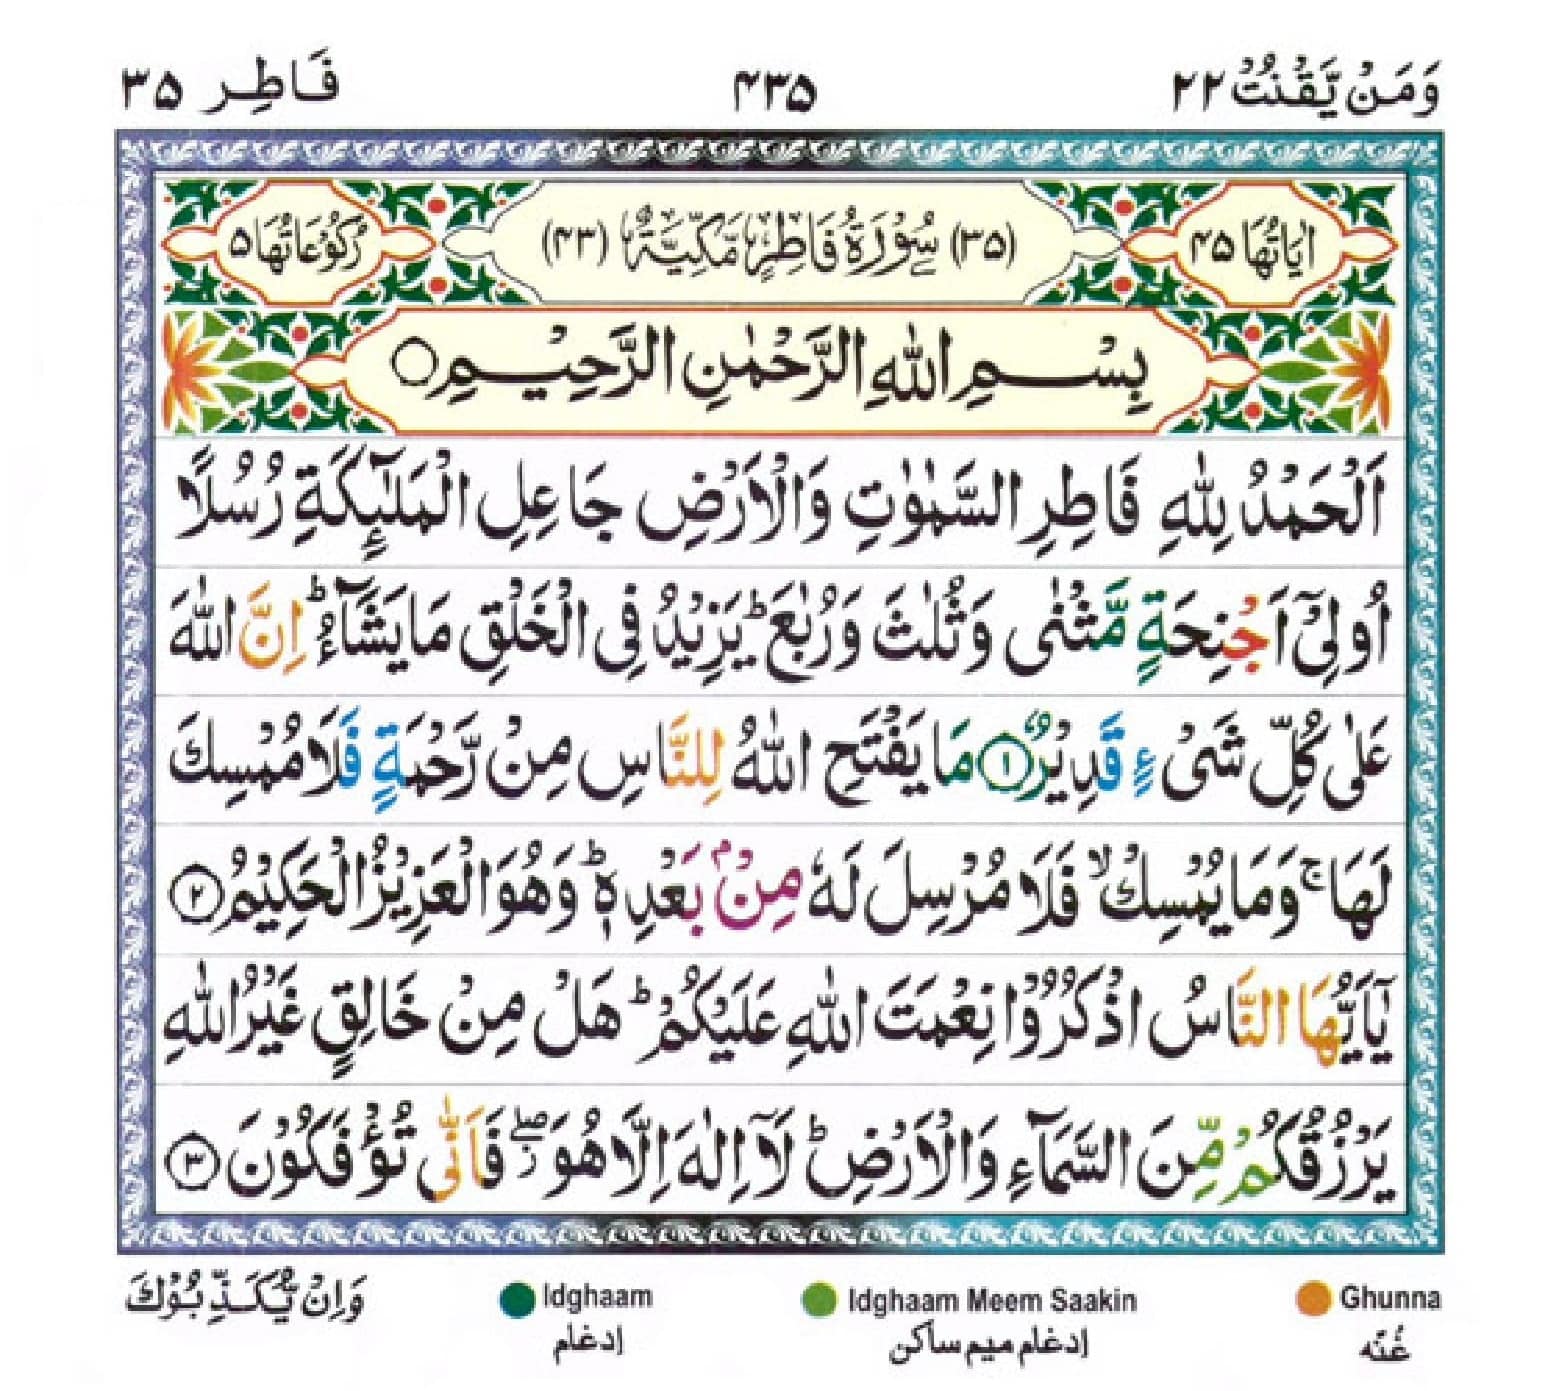 وَمَنْ يَّقْنُتْ ۲۲ ۴۳۵ فَاطِر ۳۵
اٰيَاتُهَا ۴۵ (۳۵) سُوْرَةُ فَاطِرٍ مَّكِّيَّةٌ (۴۳) رُكُوْعَاتُهَا ۵
بِسْمِ اللّٰهِ الرَّحْمٰنِ الرَّحِيْمِ ○
اَلْحَمْدُ لِلّٰهِ فَاطِرِ السَّمٰوٰتِ وَالْاَرْضِ جَاعِلِ الْمَلٰٓئِكَةِ رُسُلًا
اُولِيْٓ اَجْنِحَةٍ مَّثْنٰى وَثُلٰثَ وَرُبٰعَ ؕ يَزِيْدُ فِى الْخَلْقِ مَا يَشَآءُ ؕ اِنَّ اللّٰهَ
عَلٰى كُلِّ شَىْءٍ قَدِيْرٌ ۱ مَا يَفْتَحِ اللّٰهُ لِلنَّاسِ مِنْ رَّحْمَةٍ فَلَا مُمْسِكَ
لَهَا ۚ وَمَا يُمْسِكْ ۙ فَلَا مُرْسِلَ لَهٗ مِنْۢ بَعْدِهٖ ؕ وَهُوَ الْعَزِيْزُ الْحَكِيْمُ ۲
يٰٓاَيُّهَا النَّاسُ اذْكُرُوْا نِعْمَتَ اللّٰهِ عَلَيْكُمْ ؕ هَلْ مِنْ خَالِقٍ غَيْرُ اللّٰهِ
يَرْزُقُكُمْ مِّنَ السَّمَآءِ وَالْاَرْضِ ؕ لَآ اِلٰهَ اِلَّا هُوَ ۖز فَاَنّٰى تُؤْفَكُوْنَ ۳
Ghunna Idghaam Meem Saakin Idghaam وَاِنْ يُّكَذِّبُوْكَ
غُنّه إدغام ميم ساكن إدغام